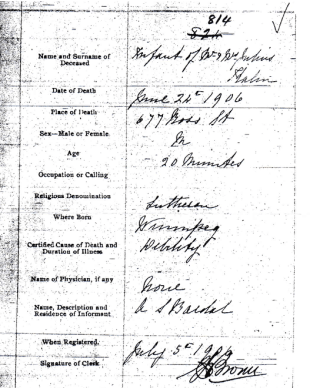 814
524
Name and Surname of Deceased Infant of Mr & Mrs Julius
Date of Death June 24th 1906
Place of Death 677 Ross St
Sex—Male or Female M
Age 20 Minutes
Occupation or Calling
Religious Denomination Lutheran
Where Born Winnipeg
Certified Cause of Death and Duration of Illness Debility
Name of Physician, if any None
Name, Description and Residence of Informant A S Bardal
When Registered. July 5th 1906
Signature of Clerk